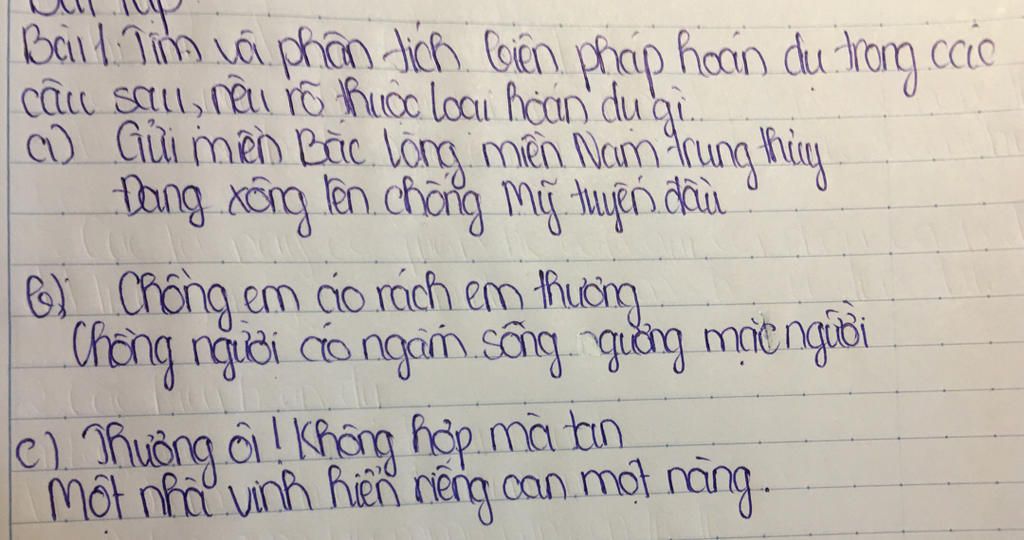 Bài tập
Bài 1: Tìm và phân tích biện pháp hoán dụ trong các
câu sau, nêu rõ thuộc loại hoán dụ gì.
a) Gửi miền Bắc lòng miền Nam trung thủy
Đang xông lên chống Mỹ tuyến đầu
b) Chồng em áo rách em thương
Chồng người áo ngắm sông gương mặc người
c) Thương ôi! Không hợp mà tan
Một nhà vinh hiển riêng oan một nàng.